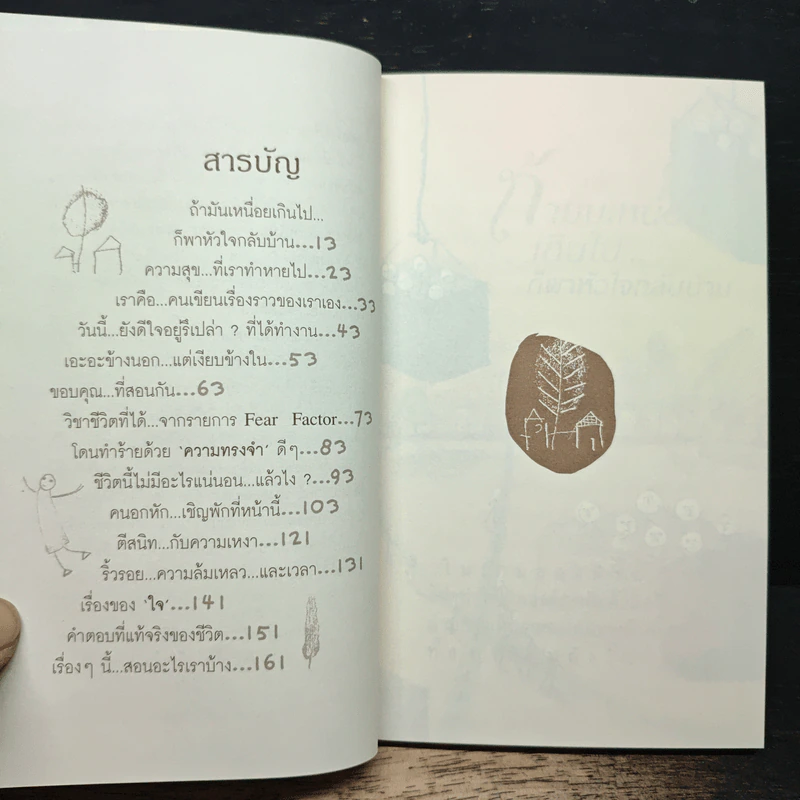 สารบัญ
ถ้ามันเหนื่อยเกินไป...
ก็พาหัวใจกลับบ้าน...13
ความสุข...ที่เราทำหายไป...23
เราคือ...คนเขียนเรื่องราวของเราเอง...33
วันนี้...ยังดีใจอยู่รึเปล่า ? ที่ได้ทำงาน...43
เอะอะข้างนอก...แต่เงียบข้างใน...53
ขอบคุณ...ที่สอนกัน...63
วิชาชีวิตที่ได้...จากรายการ Fear Factor...73
โดนทำร้ายด้วย 'ความทรงจำ' ดีๆ...83
ชีวิตนี้ไม่มีอะไรแน่นอน...แล้วไง ?...93
คนอกหัก...เชิญพักที่หน้านี้...103
ตีสนิท...กับความเหงา...121
ริ้วรอย...ความล้มเหลว...และเวลา...131
เรื่องของ 'ใจ'...141
คำตอบที่แท้จริงของชีวิต...151
เรื่องๆ นี้...สอนอะไรเราบ้าง...161